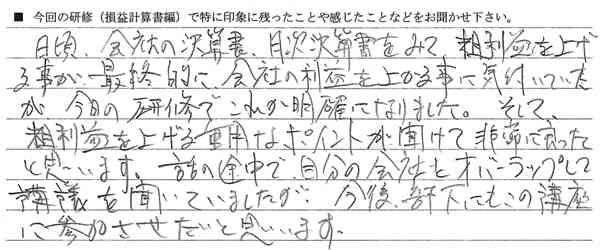 ■ 今回の研修（損益計算書編）で特に印象に残ったことや感じたことなどをお聞かせ下さい。
日頃、会社の決算書、月次決算書をみて、粗利益を上げ
る事が、最終的に、会社の利益を上がる事に気付いていた
が 今日の研修で これが明確になりました。そして、
粗利益を上げる重要なポイントが聞けて 非常に良かった
と思います。話の途中で、自分の会社とオーバーラップして
講議を聞いていましたが、今後、部下にもこの講座
に参加させたいと思います。